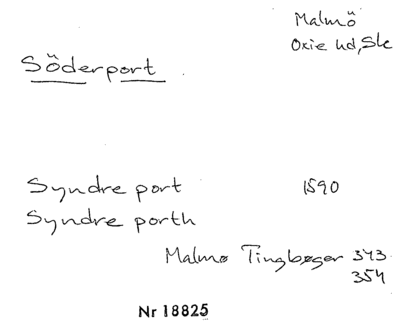 Malmö
Oxie hd, Sk
Söderport
Syndre port 1590
Syndre porth
Malmø Tingbøger 343
354
Nr 18825